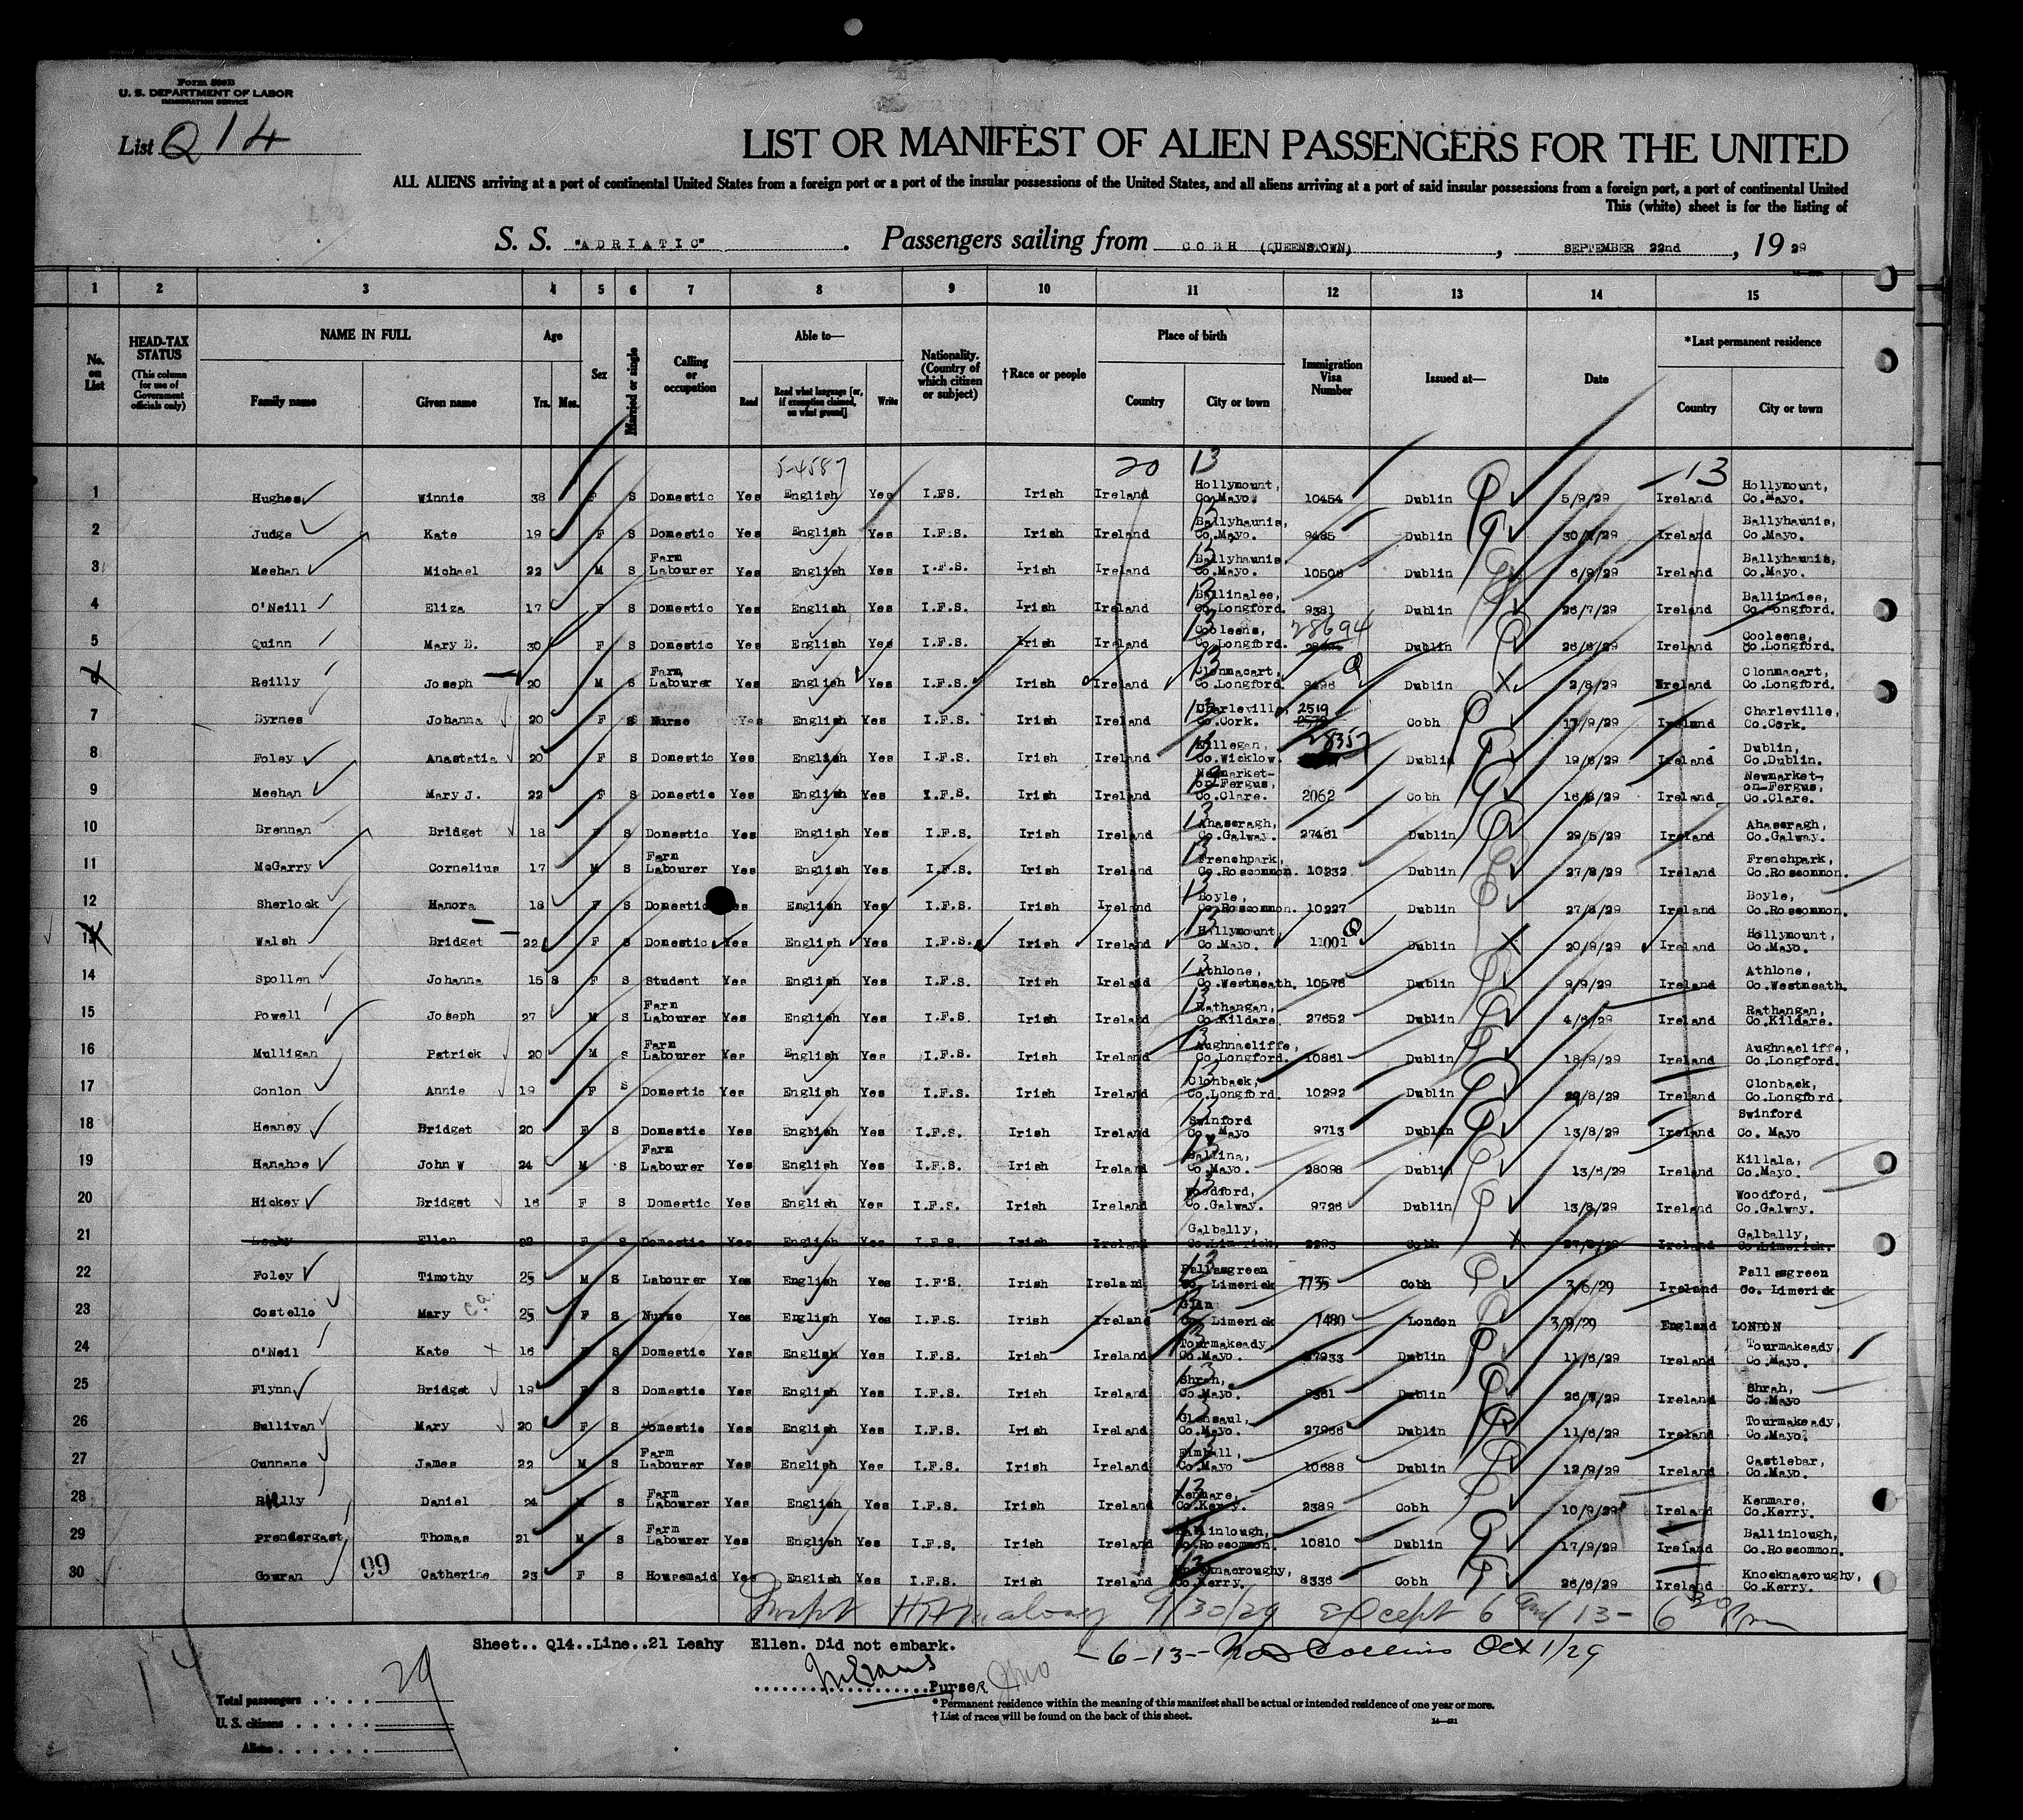 Form 500B
U. S. DEPARTMENT OF LABOR
IMMIGRATION SERVICE
List Q 14
LIST OR MANIFEST OF ALIEN PASSENGERS FOR THE UNITED
ALL ALIENS arriving at a port of continental United States from a foreign port or a port of the insular possessions of the United States, and all aliens arriving at a port of said insular possessions from a foreign port, a port of continental United
This (white) sheet is for the listing of
S. S. "ADRIATIC" . Passengers sailing from COBH (QUEENSTOWN) , SEPTEMBER 22nd , 19 29
1 2 3 4 5 6 7 8 9 10 11 12 13 14 15
No. on List
HEAD-TAX STATUS (This column for use of Government officials only)
NAME IN FULL Family name Given name
Age Yrs. Mos.
Sex
Married or single
Calling or occupation
Able to— Read Read what language [or, if exemption claimed, on what ground] Write
Nationality. (Country of which citizen or subject)
†Race or people
Place of birth Country City or town
Immigration Visa Number
Issued at—
Date
*Last permanent residence Country City or town
5-4587 20 13 13
1 Hughes Winnie 38 F S Domestic Yes English Yes I.FS. Irish Ireland Hollymount, Co.Mayo. 10454 Dublin 5/9/29 Ireland Hollymount, Co.Mayo.
2 Judge Kate 19 F S Domestic Yes English Yes I.F.S. Irish Ireland Ballyhaunis, Co.Mayo. 9485 Dublin 30/7/29 Ireland Ballyhaunis, Co.Mayo.
3 Meehan Michael 22 M S Farm Labourer Yes English Yes I.F.S. Irish Ireland Ballyhaunis, Co.Mayo. 10506 Dublin 6/9/29 Ireland Ballyhaunis, Co.Mayo.
4 O'Neill Eliza 17 F S Domestic Yes English Yes I.F.S. Irish Ireland Ballinalee, Co.Longford. 9381 Dublin 26/7/29 Ireland Ballinalee, Co.Longford.
5 Quinn Mary B. 30 F S Domestic Yes English Yes I.F.S. Irish Ireland Cooleens, Co.Longford. 28694 Dublin 26/6/29 Ireland Cooleens, Co.Longford.
6 Reilly Joseph 20 M S Farm Labourer Yes English Yes I.F.S. Irish Ireland Clonmacart, Co.Longford. 9496 Dublin 2/8/29 Ireland Clonmacart, Co.Longford.
7 Byrnes Johanna 20 F S Nurse Yes English Yes I.F.S. Irish Ireland Charleville, Co.Cork. 2519 Cobh 17/9/29 Ireland Charleville, Co.Cork.
8 Foley Anastatia 20 F S Domestic Yes English Yes I.F.S. Irish Ireland Killegan, Co.Wicklow. 28357 Dublin 19/6/29 Ireland Dublin, Co.Dublin.
9 Meehan Mary J. 22 F S Domestic Yes English Yes I.F.S. Irish Ireland Newmarket-on-Fergus, Co.Clare. 2062 Cobh 16/8/29 Ireland Newmarket-on-Fergus, Co.Clare.
10 Brennan Bridget 18 F S Domestic Yes English Yes I.F.S. Irish Ireland Ahascragh, Co.Galway. 27461 Dublin 29/5/29 Ireland Ahascragh, Co.Galway.
11 McGarry Cornelius 17 M S Farm Labourer Yes English Yes I.F.S. Irish Ireland Frenchpark, Co.Roscommon. 10232 Dublin 27/8/29 Ireland Frenchpark, Co.Roscommon.
12 Sherlock Hanora 18 F S Domestic Yes English Yes I.F.S. Irish Ireland Boyle, Co.Roscommon. 10227 Dublin 27/8/29 Ireland Boyle, Co.Roscommon.
13 Walsh Bridget 22 F S Domestic Yes English Yes I.F.S. Irish Ireland Hollymount, Co.Mayo. 11001 Dublin 20/9/29 Ireland Hollymount, Co.Mayo.
14 Spollen Johanna 15 8 F S Student Yes English Yes I.F.S. Irish Ireland Athlone, Co.Westmeath. 10576 Dublin 9/9/29 Ireland Athlone, Co.Westmeath.
15 Powell Joseph 27 M S Farm Labourer Yes English Yes I.F.S. Irish Ireland Rathangan, Co.Kildare. 27652 Dublin 4/6/29 Ireland Rathangan, Co.Kildare.
16 Mulligan Patrick 20 M S Farm Labourer Yes English Yes I.F.S. Irish Ireland Aughnacliffe, Co.Longford. 10861 Dublin 18/9/29 Ireland Aughnacliffe, Co.Longford.
17 Conlon Annie 19 F S Domestic Yes English Yes I.F.S. Irish Ireland Clonback, Co.Longford. 10292 Dublin 29/8/29 Ireland Clonback, Co.Longford.
18 Heaney Bridget 20 F S Domestic Yes English Yes I.F.S. Irish Ireland Swinford Co. Mayo 9713 Dublin 13/8/29 Ireland Swinford Co. Mayo
19 Hanahoe John W 24 M S Farm Labourer Yes English Yes I.F.S. Irish Ireland Ballina, Co.Mayo. 28098 Dublin 13/6/29 Ireland Killala, Co.Mayo.
20 Hickey Bridget 16 F S Domestic Yes English Yes I.F.S. Irish Ireland Woodford, Co.Galway. 9726 Dublin 13/8/29 Ireland Woodford, Co.Galway.
21 Leahy Ellen F S Domestic Yes English Yes I.F.S. Irish Ireland Galbally, Co.Limerick. Cobh Ireland Galbally, Co.Limerick.
22 Foley Timothy 25 M S Labourer Yes English Yes I.F.S. Irish Ireland Pallasgreen Co. Limerick 7735 Cobh 3/6/29 Ireland Pallasgreen Co. Limerick
23 Costello Mary 25 F S Nurse Yes English Yes I.F.S. Irish Ireland Glin Co. Limerick 7480 London 3/9/29 England LONDON
24 O'Neil Kate 16 F S Domestic Yes English Yes I.F.S. Irish Ireland Tourmakeady, Co.Mayo. 27933 Dublin 11/6/29 Ireland Tourmakeady, Co.Mayo.
25 Flynn Bridget 19 F S Domestic Yes English Yes I.F.S. Irish Ireland Shrah, Co.Mayo. 9361 Dublin 26/7/29 Ireland Shrah, Co.Mayo
26 Sullivan Mary 20 F S Domestic Yes English Yes I.F.S. Irish Ireland Glensaul, Co.Mayo. 27966 Dublin 11/6/29 Ireland Tourmakeady, Co.Mayo.
27 Cunnane James 22 M S Farm Labourer Yes English Yes I.F.S. Irish Ireland Co.Mayo 10688 Dublin 12/9/29 Ireland Castlebar, Co.Mayo.
28 Daniel 24 M S Farm Labourer Yes English Yes I.F.S. Irish Ireland Kenmare, Co.Kerry. 2389 Cobh 10/9/29 Ireland Kenmare, Co.Kerry.
29 Prendergast Thomas 21 M S Farm Labourer Yes English Yes I.F.S. Irish Ireland Ballinlough, Co.Roscommon. 10810 Dublin 17/9/29 Ireland Ballinlough, Co.Roscommon.
30 Gowran 99 Catherine 23 F S Housemaid Yes English Yes I.F.S. Irish Ireland Knocknacroughy, Co.Kerry. 8336 Cobh 26/6/29 Ireland Knocknacroughy, Co.Kerry.
9/30/29 except 6 and 13- 6 30 pm
Sheet.. Q14..Line..21 Leahy Ellen. Did not embark.
-6-13- Collins Oct 1/29
14
PurseR
Total passengers 29
U. S. citizens
Aliens
* Permanent residence within the meaning of this manifest shall be actual or intended residence of one year or more.
† List of races will be found on the back of this sheet.